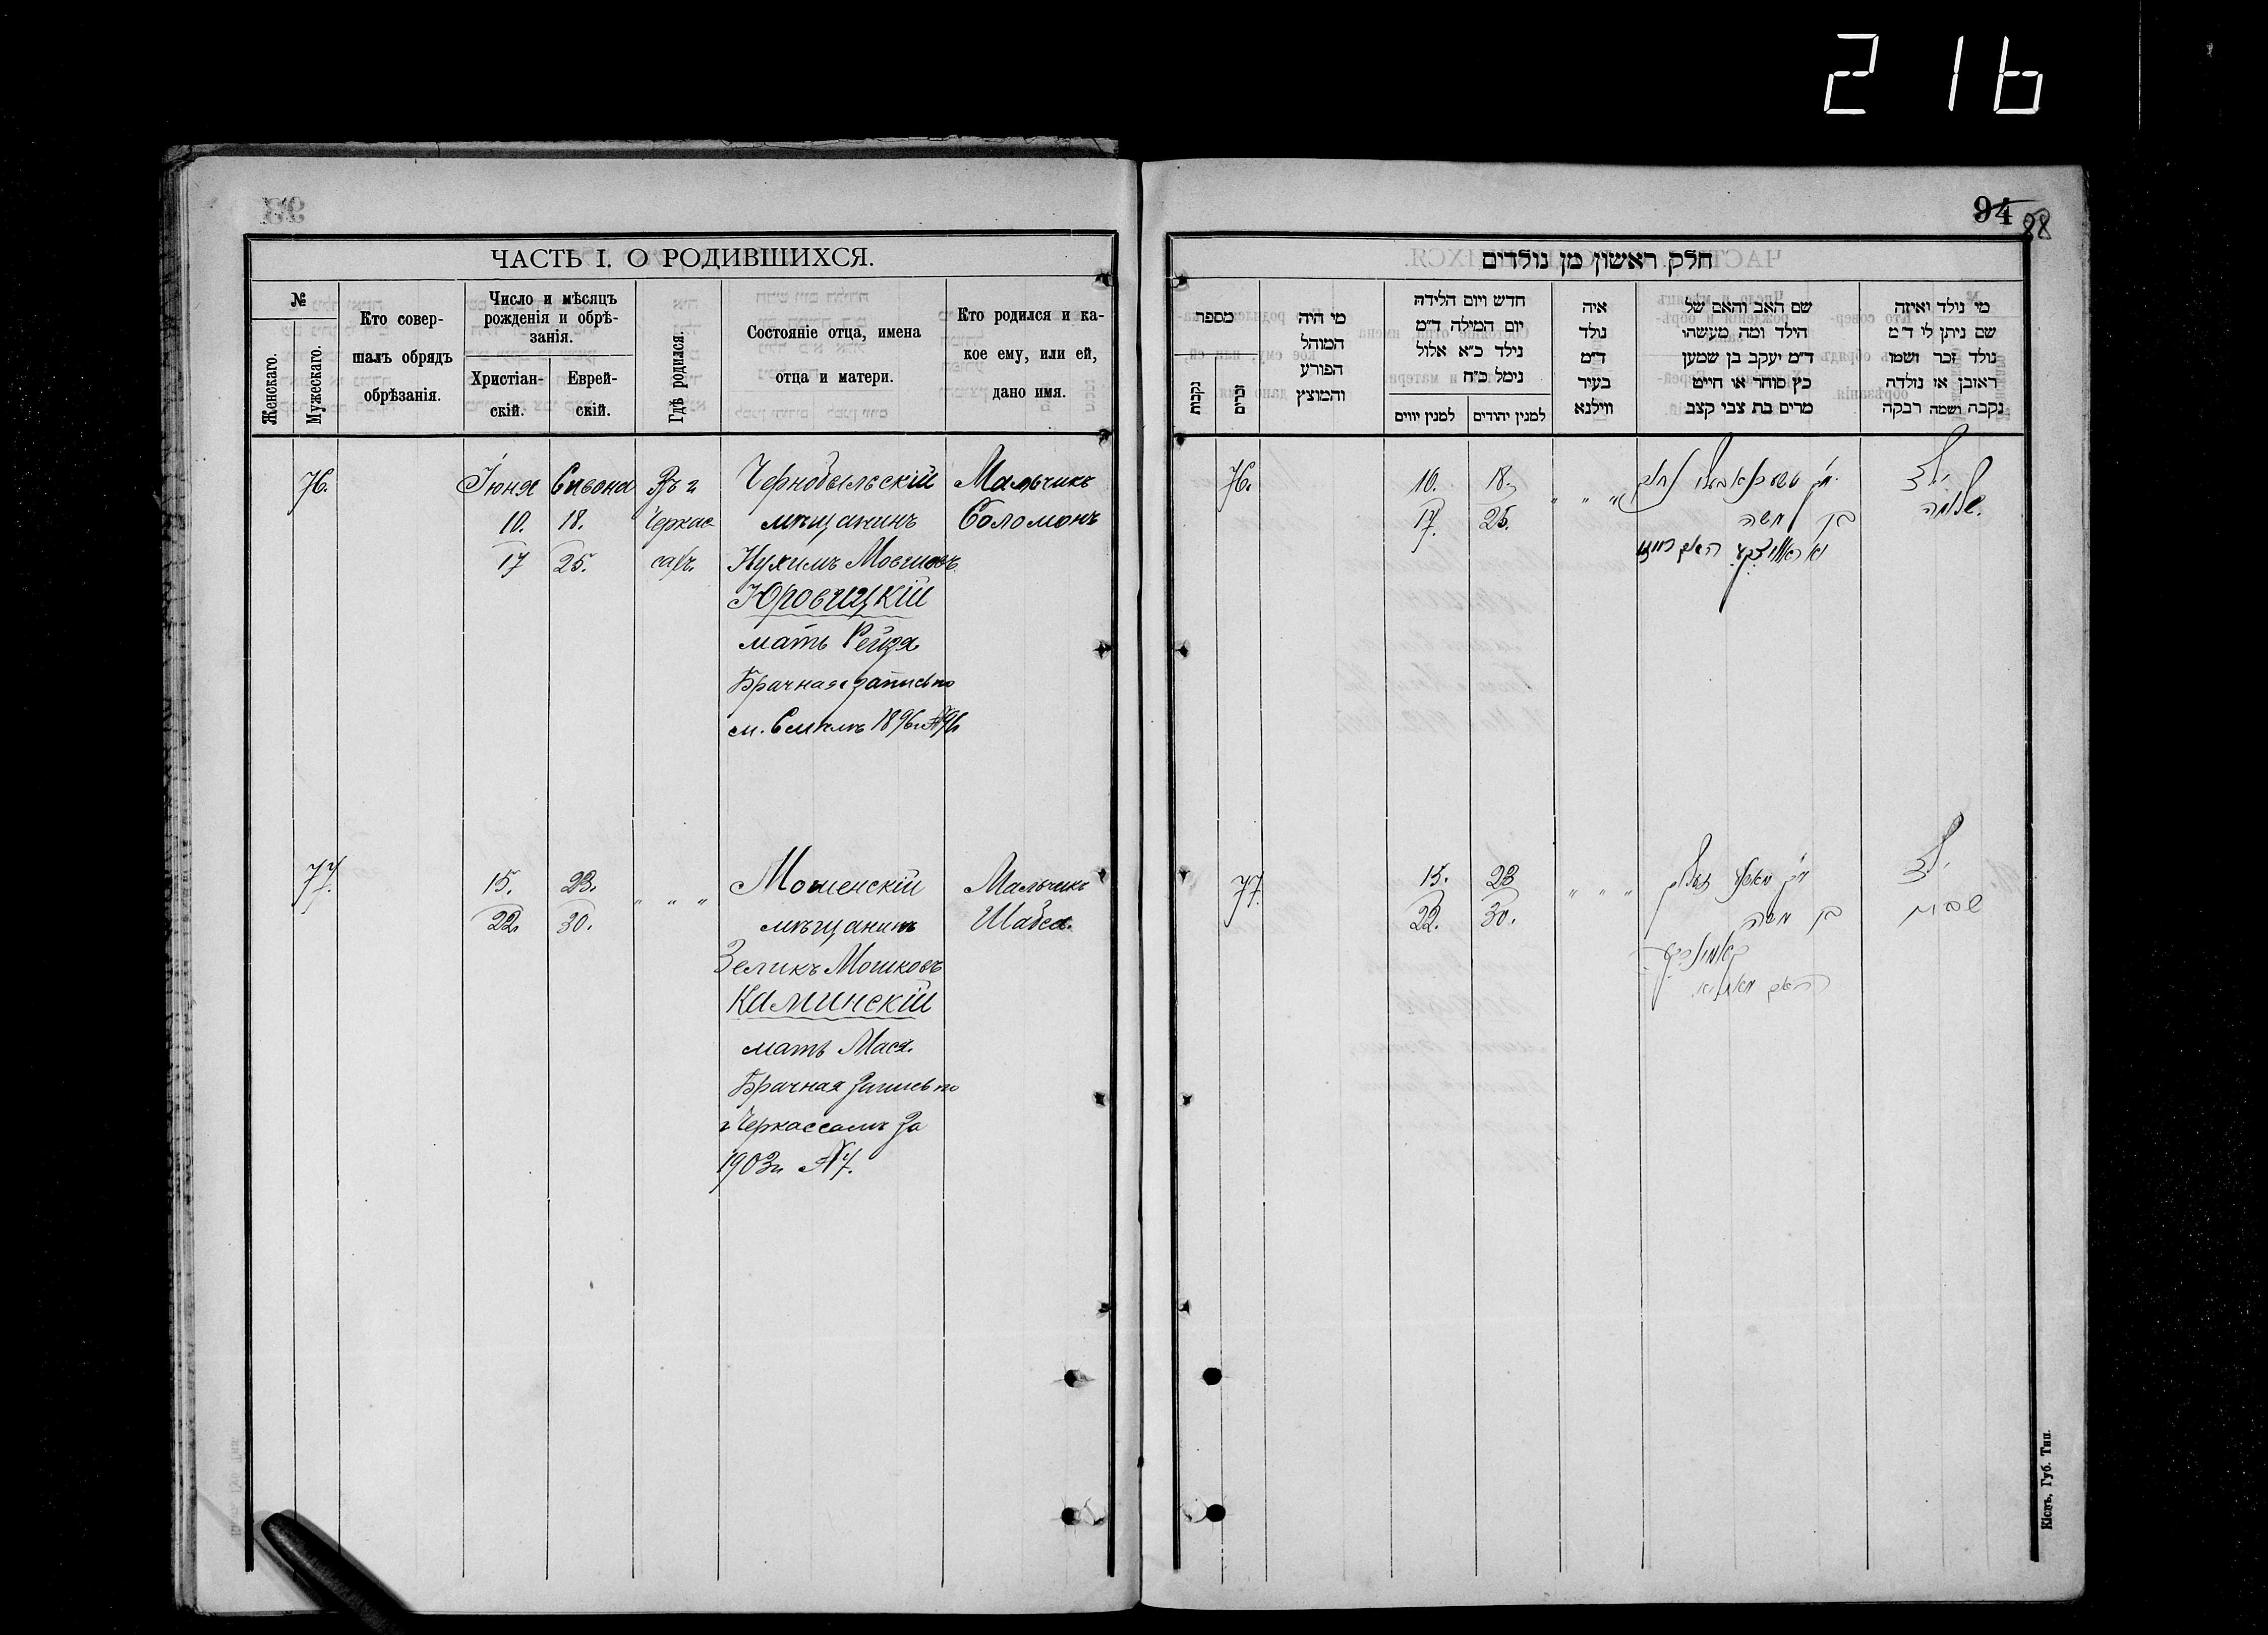 216
94
88
ЧАСТЬ I. О РОДИВШИХСЯ.
№
Женскаго.
Мужескаго.
Кто совер-
шалъ обрядъ
обрѣзанія.
Число и мѣсяцъ
рожденія и обрѣ-
занія.
Христіан-
скій.
Еврей-
скій.
Гдѣ родился.
Состояніе отца, имена
отца и матери.
Кто родился и ка-
кое ему, или ей,
дано имя.
76.
Іюня
10.
17
Сивона
18.
25.
Въ г
Черкас
сахъ.
Чернобыльскій
мѣщанинъ
Нухимъ Мовшовъ
Юровицкій
мать Рейзя
Брачная запись по
м. Смѣлѣ 1896 г №96
Мальчикъ
Соломонъ
77.
15.
22.
23.
30.
" " "
Мошенскій
мѣщанинъ
Зеликъ Мошковъ
Каминскій
мать Мася.
Брачная запись по
г Черкассамъ за
1903 г №7.
Мальчикъ
Шабса.
חלק ראשון מן נולדים
מספר
נקבות
זכרים
מי היה
המוהל
הפורע
והמוצץ
חדש ויום הלידה
יום המילה ד״מ
נילד כ״א אלול
נימל כ״ח
למנין יווים
למנין יהודים
איה
נולד
ד״מ
בעיר
ווילנא
שם האב והאם של
הילד ומה מעשהו
ד״מ יעקב בן שמען
כץ סוחר או חייט
מרים בת צבי קצב
מי נולד ואיזה
שם ניתן לו ד״מ
נולד זכר ושמו
ראובן או נולדה
נקבה ושמה רבקה
76.
10.
17.
18.
25.
" " "
בן משה
ילד
שלמה.
77.
15.
22.
23
30.
" " "
בן משה
קאמינסקי
ילד
שבתי
Кіевъ, Губ. Тип.